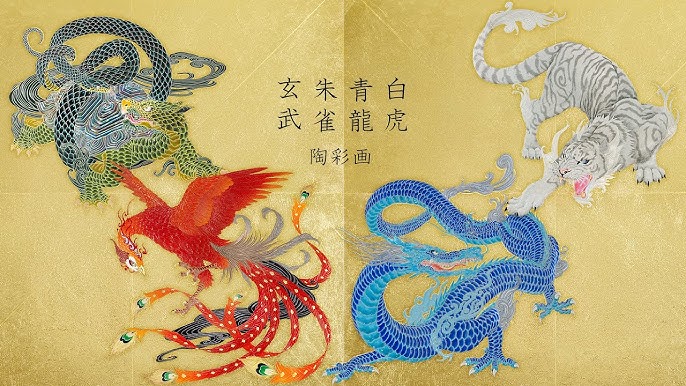 白虎
青龍
朱雀
玄武
陶彩画